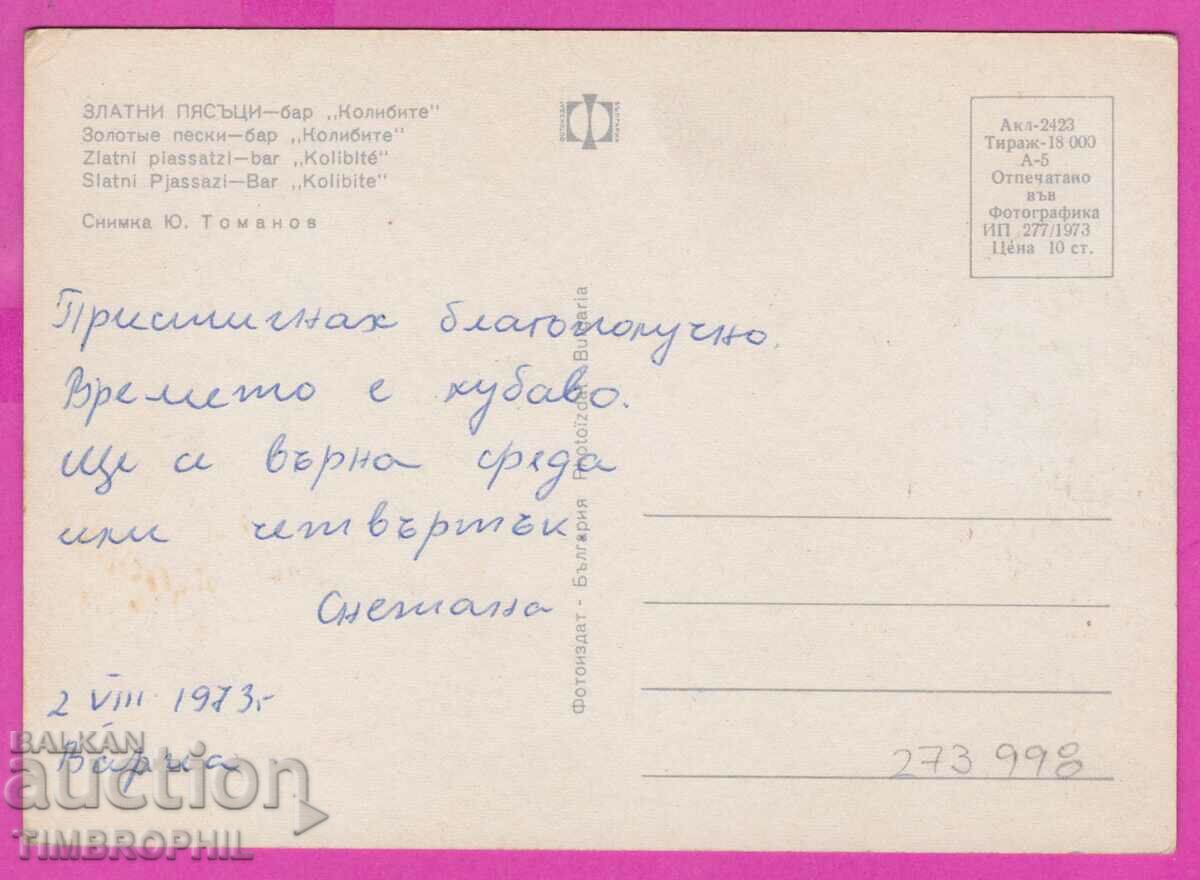 ЗЛАТНИ ПЯСЪЦИ—бар „Колибите"
Золотые пески—бар „Колибите"
Zlatni piassatzi—bar „Kolibité"
Slatni Pjassazi—Bar „Kolibite"
Снимка Ю. Томанов
ФОТОИЗДАТ
БЪЛГАРИЯ
Акл-2423
Тираж-18 000
А-5
Отпечатано
във
Фотографика
ИП 277/1973
Цена 10 ст.
Пристигнах благополучно.
Времето е хубаво.
Ще се върна сряда
или четвъртък.
Снежана
2 VIII 1973г.
Варна
Фотоиздат - България Photoïzdat - Bulgaria
273 998
BALKAN
auction
TIMBROPHIL